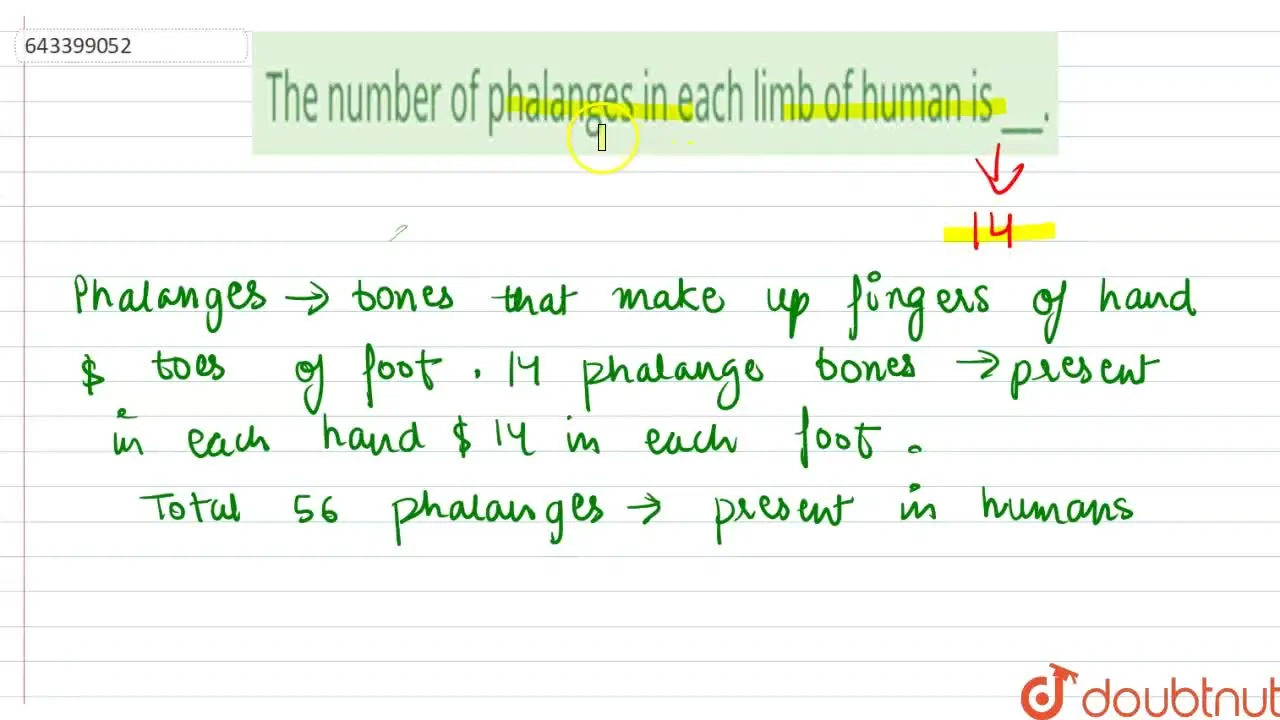 643399052
The number of phalanges in each limb of human is ___.
14
Phalanges → bones that make up fingers of hand
$ toes of foot . 14 phalange bones → present
in each hand $ 14 in each foot .
Total 56 phalanges → present in humans
doubtnut